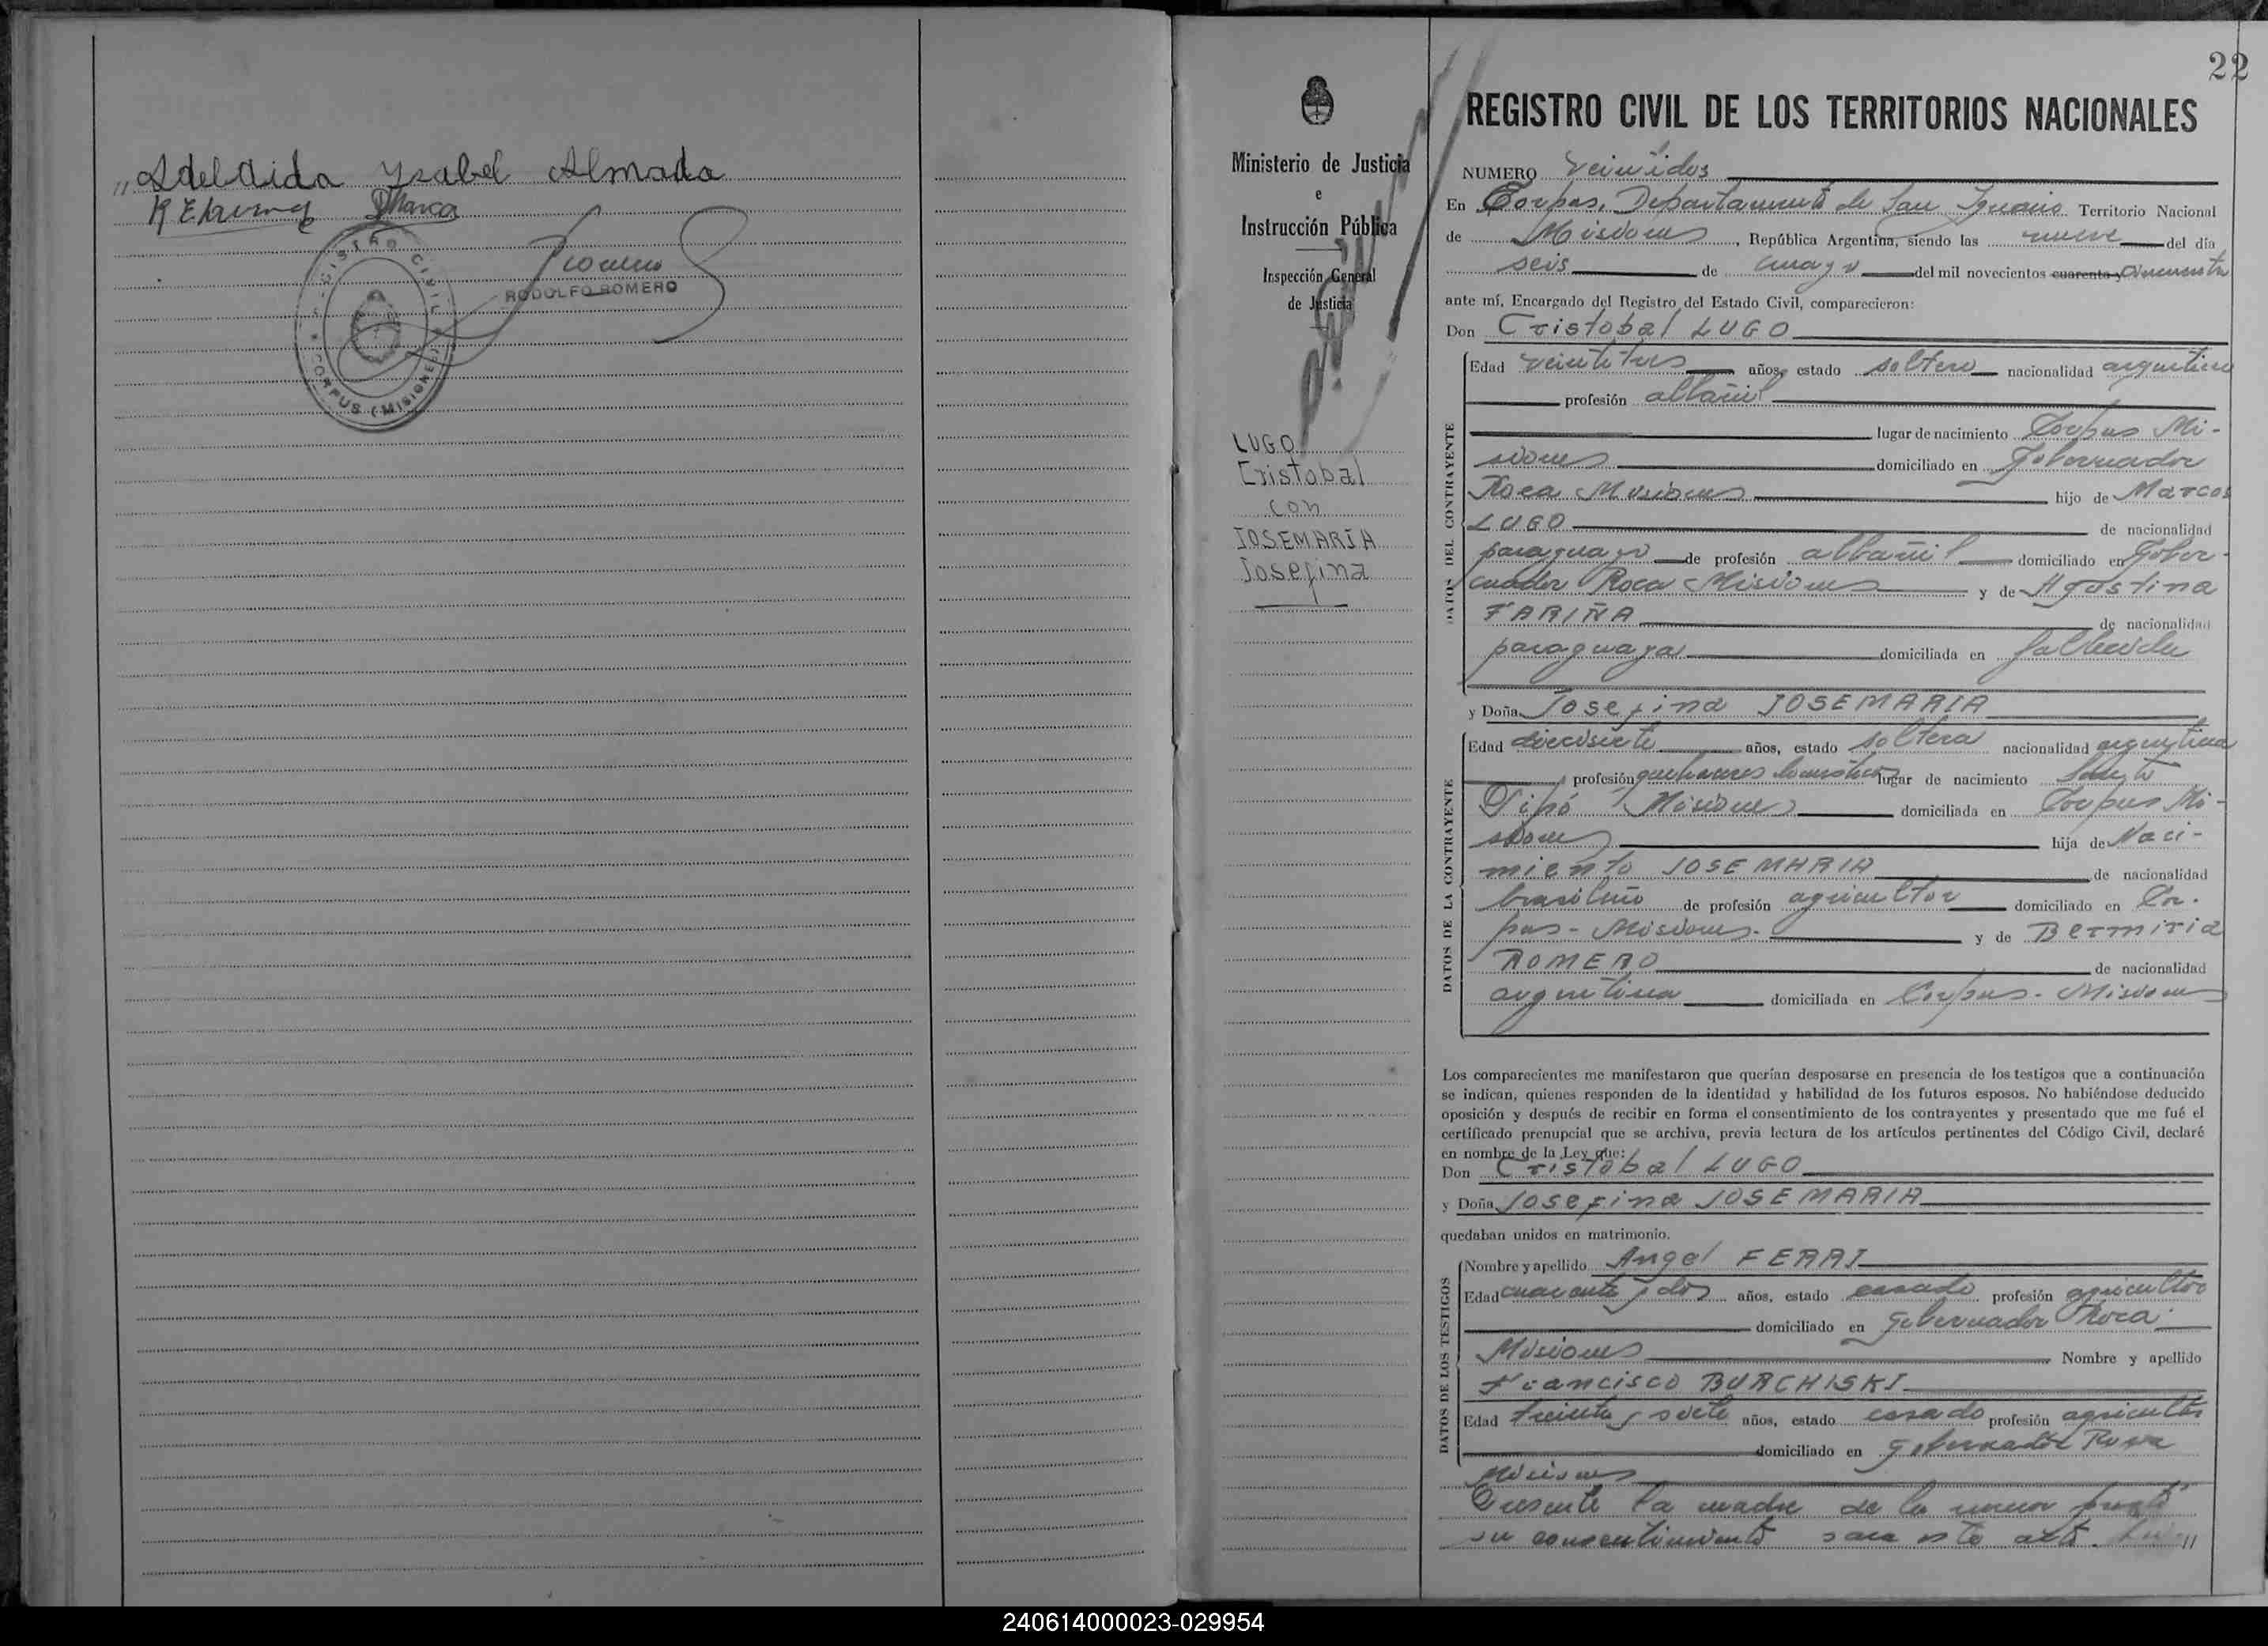 " Adelaida Ysabel Almada
RODOLFO ROMERO
REGISTRO CIVIL
CORPUS (MISIONES)
Ministerio de Justicia
e
Instrucción Pública
Inspección General
de Justicia
LUGO
Cristobal
con
JOSEMARIA
Josefina
22
REGISTRO CIVIL DE LOS TERRITORIOS NACIONALES
NUMERO veintidos
En Corpus, Departamento de San Ignacio Territorio Nacional
de Misiones, República Argentina, siendo las nueve del día
seis de mayo del mil novecientos cuarenta y cincuenta
ante mí, Encargado del Registro del Estado Civil, comparecieron:
Don Cristobal LUGO
DATOS DEL CONTRAYENTE
Edad veintitres años, estado soltero nacionalidad argentino
profesión albañil
lugar de nacimiento Corpus Mi-
siones domiciliado en Gobernador
Roca Misiones hijo de Marcos
LUGO de nacionalidad
paraguayo de profesión albañil domiciliado en Gober-
nador Roca Misiones y de Agostina
FARIÑA de nacionalidad
paraguaya domiciliada en fallecida
y Doña Josefina JOSEMARIA
DATOS DE LA CONTRAYENTE
Edad diecisiete años, estado soltera nacionalidad argentina
profesión quehaceres domésticos lugar de nacimiento
Pipó Misiones domiciliada en Corpus Mi-
siones hija de Naci-
miento JOSEMARIA de nacionalidad
brasileño de profesión agricultor domiciliado en Cor-
pus - Misiones - y de Bermiria
ROMERO de nacionalidad
argentina domiciliada en Corpus - Misiones
Los comparecientes me manifestaron que querían desposarse en presencia de los testigos que a continuación
se indican, quienes responden de la identidad y habilidad de los futuros esposos. No habiéndose deducido
oposición y después de recibir en forma el consentimiento de los contrayentes y presentado que me fué el
certificado prenupcial que se archiva, previa lectura de los artículos pertinentes del Código Civil, declaré
en nombre de la Ley que:
Don Cristobal LUGO
y Doña Josefina JOSEMARIA
quedaban unidos en matrimonio.
DATOS DE LOS TESTIGOS
Nombre y apellido Angel FERRI
Edad cuarenta y dos años, estado casado profesión agricultor
domiciliado en Gobernador Roca
Misiones Nombre y apellido
Francisco BURCHISKI
Edad treinta y siete años, estado casado profesión agricultor
domiciliado en Gobernador Roca
Misiones
Presente la madre de la menor prestó
su consentimiento para este acto. "
240614000023-029954